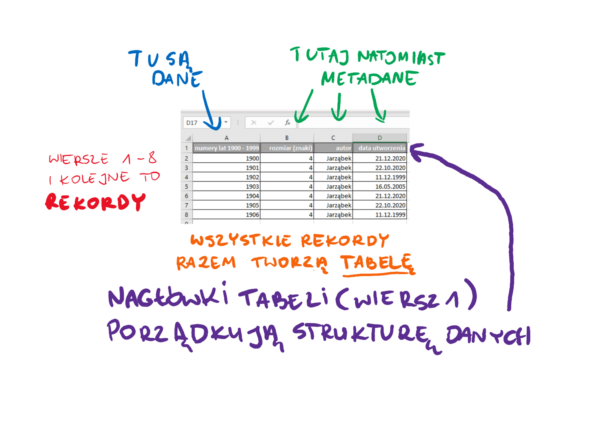 TU SĄ
DANE
TUTAJ NATOMIAST
METADANE
WIERSZE 1-8
I KOLEJNE TO
REKORDY
D17 fx
A B C D
1 numery lat 1900 - 1999 rozmiar [znaki] autor data utworzenia
2 1900 4 Jarząbek 21.12.2020
3 1901 4 Jarząbek 22.10.2020
4 1902 4 Jarząbek 11.12.1999
5 1903 4 Jarząbek 16.05.2005
6 1904 4 Jarząbek 21.12.2020
7 1905 4 Jarząbek 22.10.2020
8 1906 4 Jarząbek 11.12.1999
WSZYSTKIE REKORDY
RAZEM TWORZĄ TABELĘ
NAGŁÓWKI TABELI (WIERSZ 1)
PORZĄDKUJĄ STRUKTURĘ DANYCH